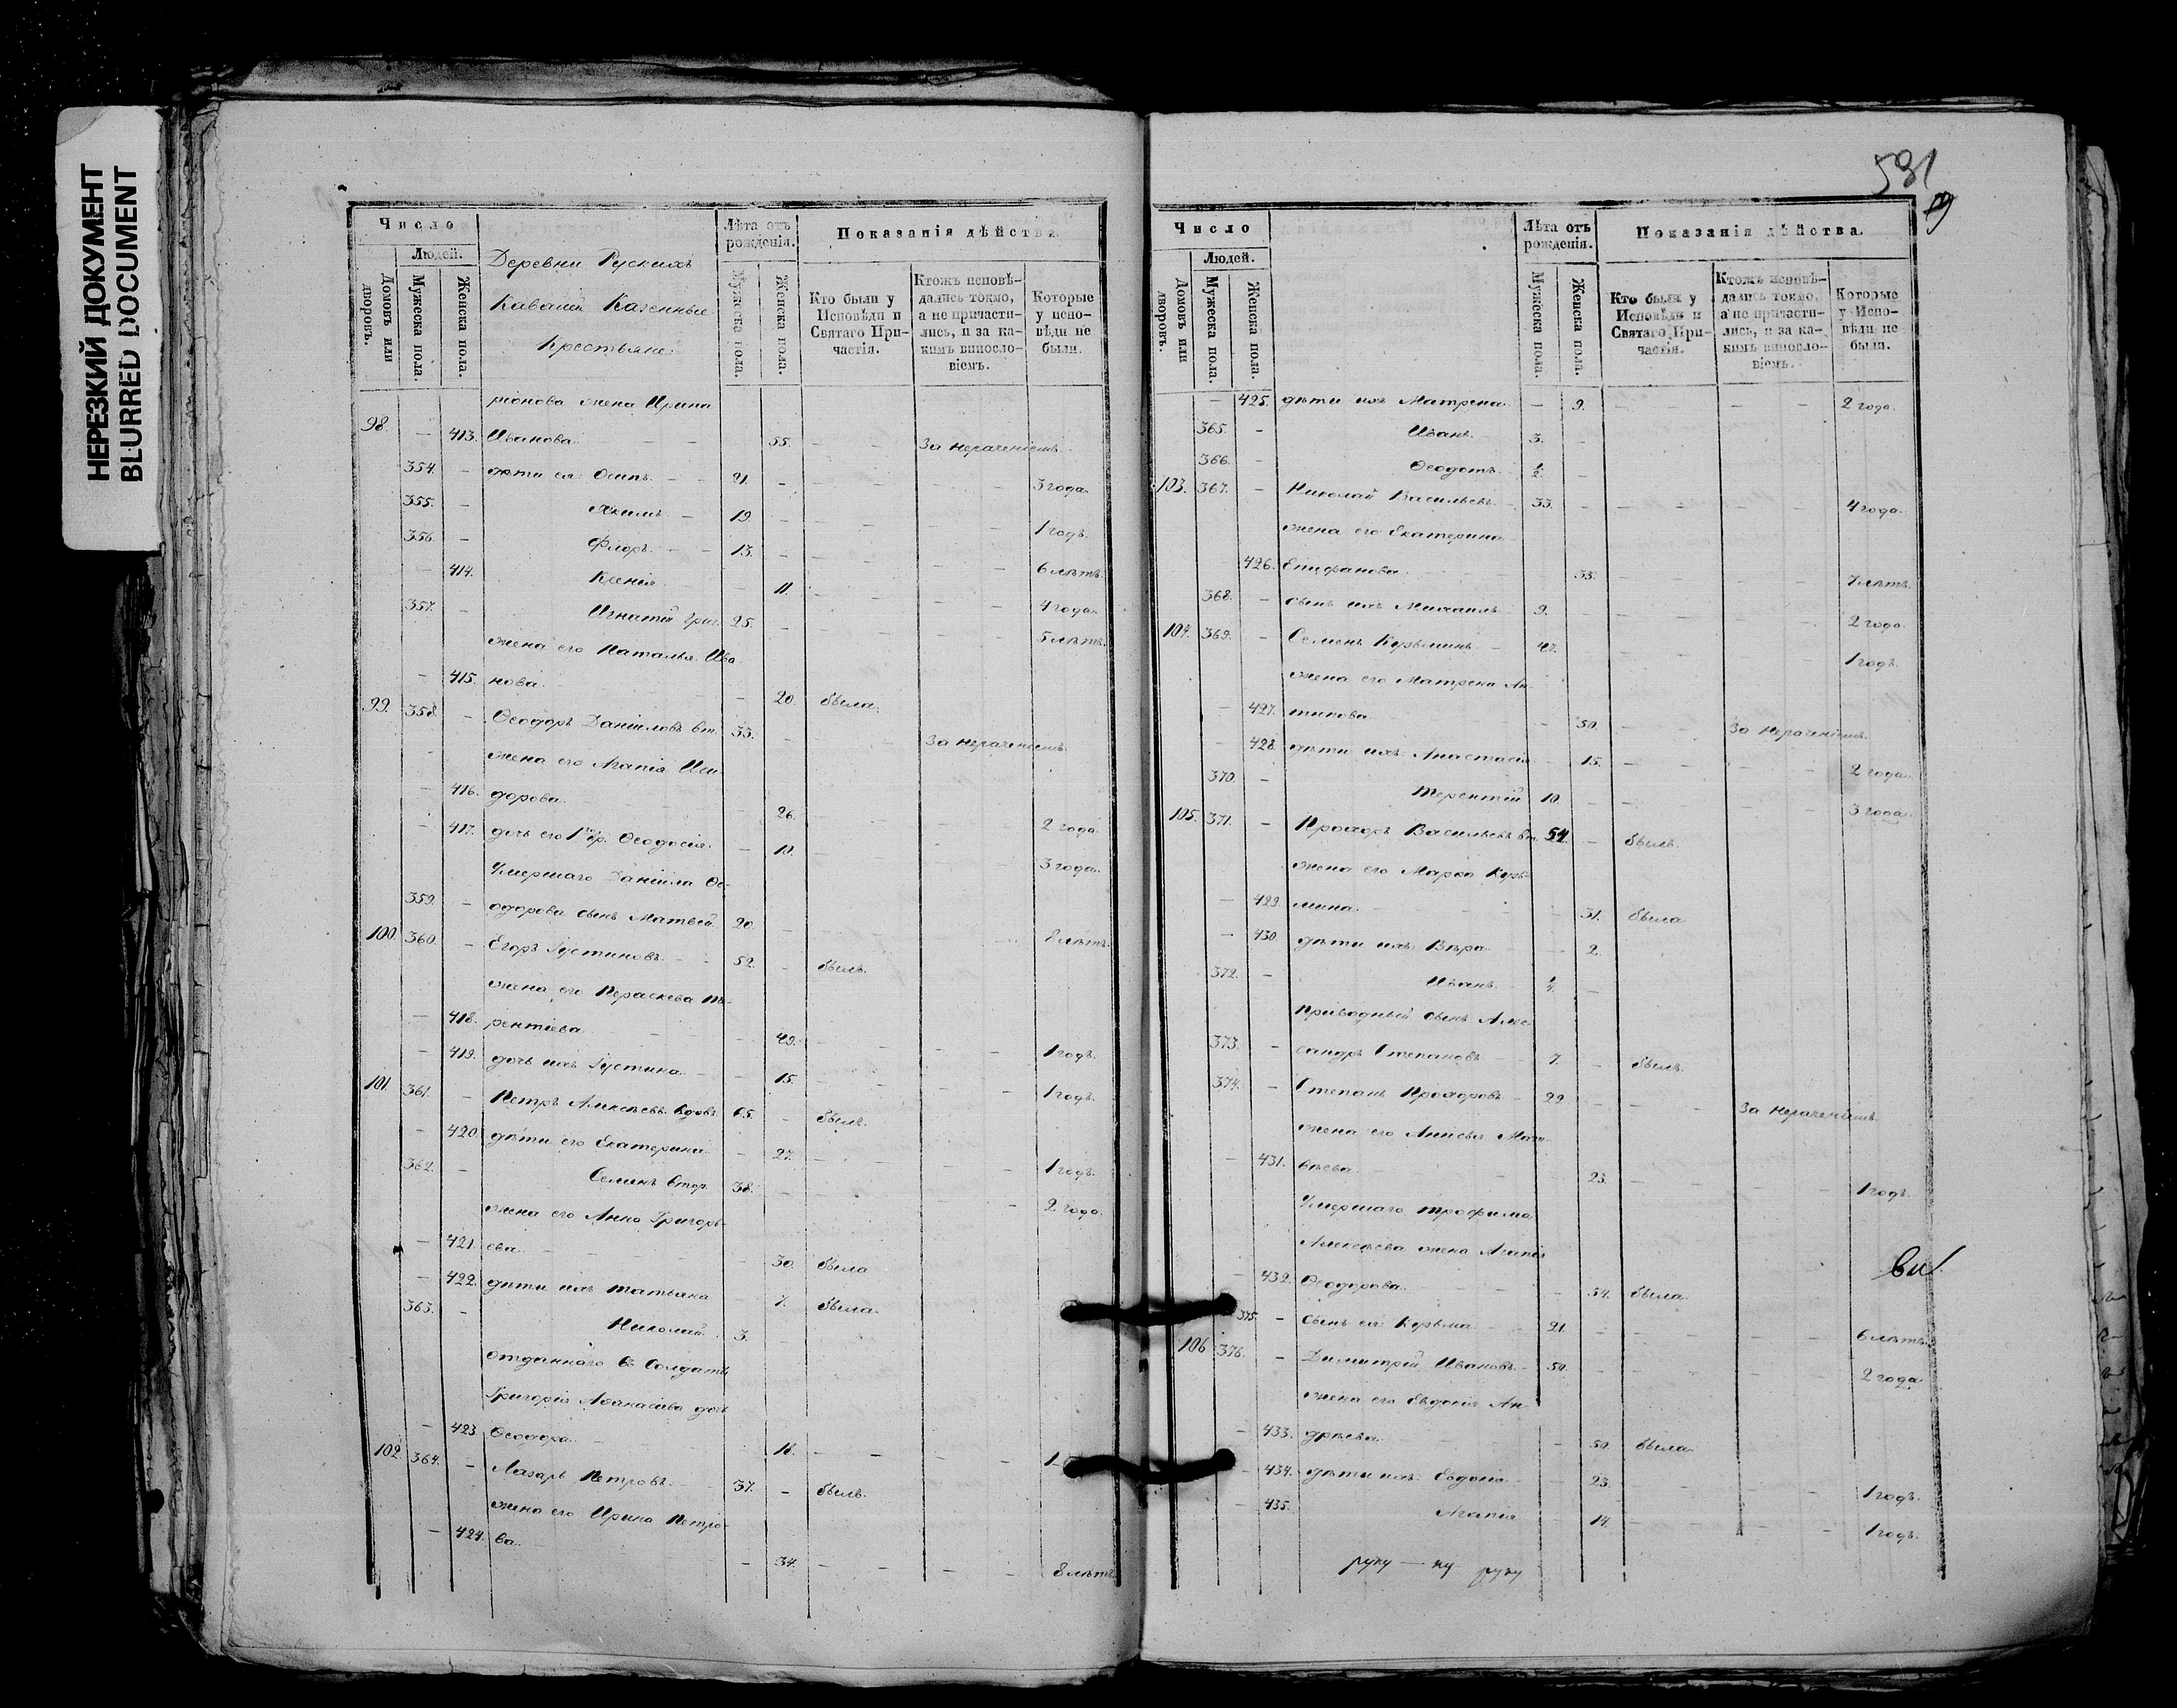 НЕРЕЗКИЙ ДОКУМЕНТ
BLURRED DOCUMENT
Число
Людей.
Домовъ или дворовъ.
Мужеска пола.
Женска пола.
Деревни Рускихъ
Казенные
Крестьяне:
Лѣта отъ рожденія.
Мужеска пола.
Женска пола.
Показанія дѣйства.
Кто были у Исповѣди и Святаго Причастія.
Ктожъ исповѣдались токмо, а не причастились, и за какимъ винословіемъ.
Которые у исповѣди не были.
ріонова жена Ирина
98. — 413. Иванова. — — 55. — — За нераченіемъ.
354. — дѣти ея: Осипъ. — — 21. — — — — 3 года.
355. — Якимъ — 19. — — — — 1 годъ.
356. — Флоръ — — 13. — — — — 6 лѣтъ.
— 414. Ксенія — — 11. — — — — 4 года.
357. — Игнатій Григ. 25. — — — — 5 лѣтъ.
жена его Наталья Ива-
— 415. нова. — 20. была.
99. 358. — Ѳеодоръ Даніиловъ вт. 33. — — — За нераченіемъ.
жена его Агапія Иси-
— 416. дорова. — 26. — — — 2 года.
— 417. дочь его 1го бр. Ѳеодосія. — 10. — — — 3 года.
Умершаго Даніила Ѳе-
359. — одорова сынъ Матвей 20. — — 8 лѣтъ.
100. 360. — Егоръ Іустиновъ — — 52. — былъ.
жена его Параскева Те-
— 418. рентіева — 49. — — — 1 годъ.
— 419. дочь ихъ Іустина. — — 15. — — — 1 годъ.
101. 361. — Петръ Алексѣевъ вдовъ 65. — былъ.
— 420. дѣти его Екатерина — 27. — — — 1 годъ.
362. — Семенъ втор. 38. — — — 2 года.
жена его Анна Григорь-
— 421. ева. — 30. была
— 422. дѣти ихъ Татьяна 7. была.
363. — Николай 3. —
Отданнаго въ Солдаты
Григорія Аѳанасіева дочь
— 423. Ѳеодора — 18. — — — 1
102. 364. — Лазарь Петровъ. — 37. — былъ.
жена его Ирина Петро-
— 424. ва. — 34. — — — 8 лѣтъ.
581
Число
Людей.
Домовъ или дворовъ.
Мужеска пола.
Женска пола.
Лѣта отъ рожденія.
Мужеска пола.
Женска пола.
Показанія дѣйства.
Кто были у Исповѣди и Святаго Причастія.
Ктожъ исповѣдались токмо, а не причастились, и за какимъ винословіемъ.
Которые у Исповѣди не были.
— 425. дѣти ихъ Матрена — 9. — — — 2 года.
365. — Иванъ 3. —
366. — Ѳеодотъ 1/2. —
103. 367. — Николай Васильевъ — 33. — — — — 4 года.
жена его Екатерина
— 426. Епифанова. 35. — — — 7 лѣтъ.
368. — сынъ ихъ Михаилъ 9. — — — 2 года.
104. 369. — Семенъ Кузьминъ — 47. — — — 1 годъ.
жена его Матрена Ан-
— 427. типова. — 50. — За нераченіемъ.
— 428. дѣти ихъ Анастасія — 15. — — — 2 года.
370. — Терентій 10. — — — 3 года.
105. 371. — Прохоръ Васильевъ вт. 54. — былъ.
жена его Марѳа Кузь-
— 429. мина. — 31. была
— 430. дѣти ихъ: Вѣра — 2.
372. — Иванъ —
Приводный сынъ Алек-
373. — сандръ Степановъ 7. — былъ.
374. — Степанъ Прохоровъ — 22. — — За нераченіемъ.
жена его Анисья Мат-
— 431. вѣева. — 23. — — — 1 годъ.
Умершаго Трофима
Алексѣева жена Агапія
— 432. Ѳеодорова. — 54. была.
375. — Сынъ ея: Козьма — 21. — — — 6 лѣтъ.
106 376. — Димитрій Ивановъ. — 50. — — — 2 года
жена его Евдокія Ан-
— 433. дреева. — 50. была.
— 434. дѣти ихъ: Евдокія — 23. — — — 1 годъ.
— 435. Агапія 14. — — — 1 годъ.